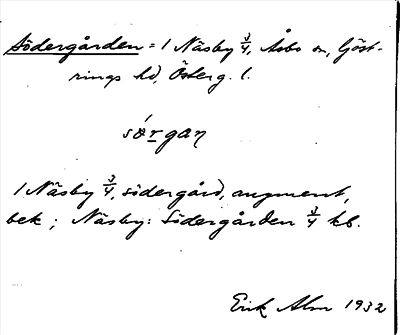 Södergården = 1 Näsby 3/4, Åsbo sn, Göst-
rings hd, Österg. l.
sö́rgan
1 Näsby 3/4, södergård, augment,
bek; Näsby: Södergården 3/4 kb.
Erik Alm 1932